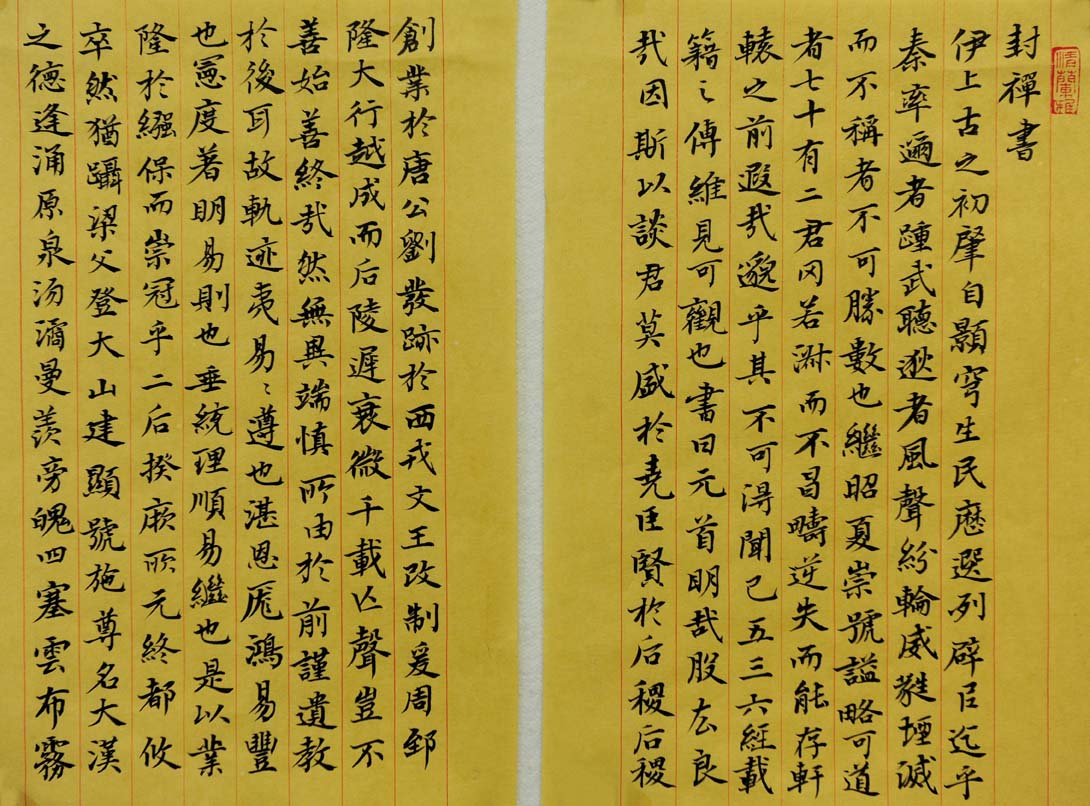 封禪書
伊上古之初肇自顥穹生民歷選列辟㠯迄乎
秦率邇者踵武聽逖者風聲紛輪威蕤堙滅
而不稱者不可勝數也繼昭夏崇號謚略可道
者七十有二君罔若淑而不昌疇逆失而能存軒
轅之前遐哉邈乎其不可得聞已五三六經載
籍之傳維見可觀也書曰元首明哉股厷良
哉因斯以談君莫盛於堯臣賢於后稷后稷
創業於唐公劉發跡於西戎文王改制爰周郅
隆大行越成而后陵遲衰微千載亡聲豈不
善始善終哉然無異端慎所由於前謹遺教
於後耳故軌迹夷易〻遵也湛恩厖鴻易豐
也憲度著明易則也垂統理順易繼也是以業
隆於繈保而崇冠乎二后揆厥所元終都攸
卒然猶躡梁父登大山建顯號施尊名大漢
之德逢涌原泉沕潏曼羨旁魄四塞雲布霧